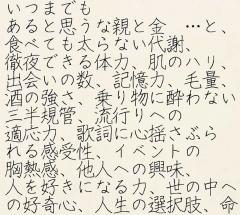 いつまでも
あると思うな親と金　…と、
食べても太らない代謝、
徹夜できる体力、肌のハリ、
出会いの数、記憶力、毛量、
酒の強さ、乗り物に酔わない
三半規管、流行りへの
適応力、歌詞に心揺さぶら
れる感受性、イベントの
胸熱感、他人への興味、
人を好きになる力、世の中へ
の好奇心、人生の選択肢、命